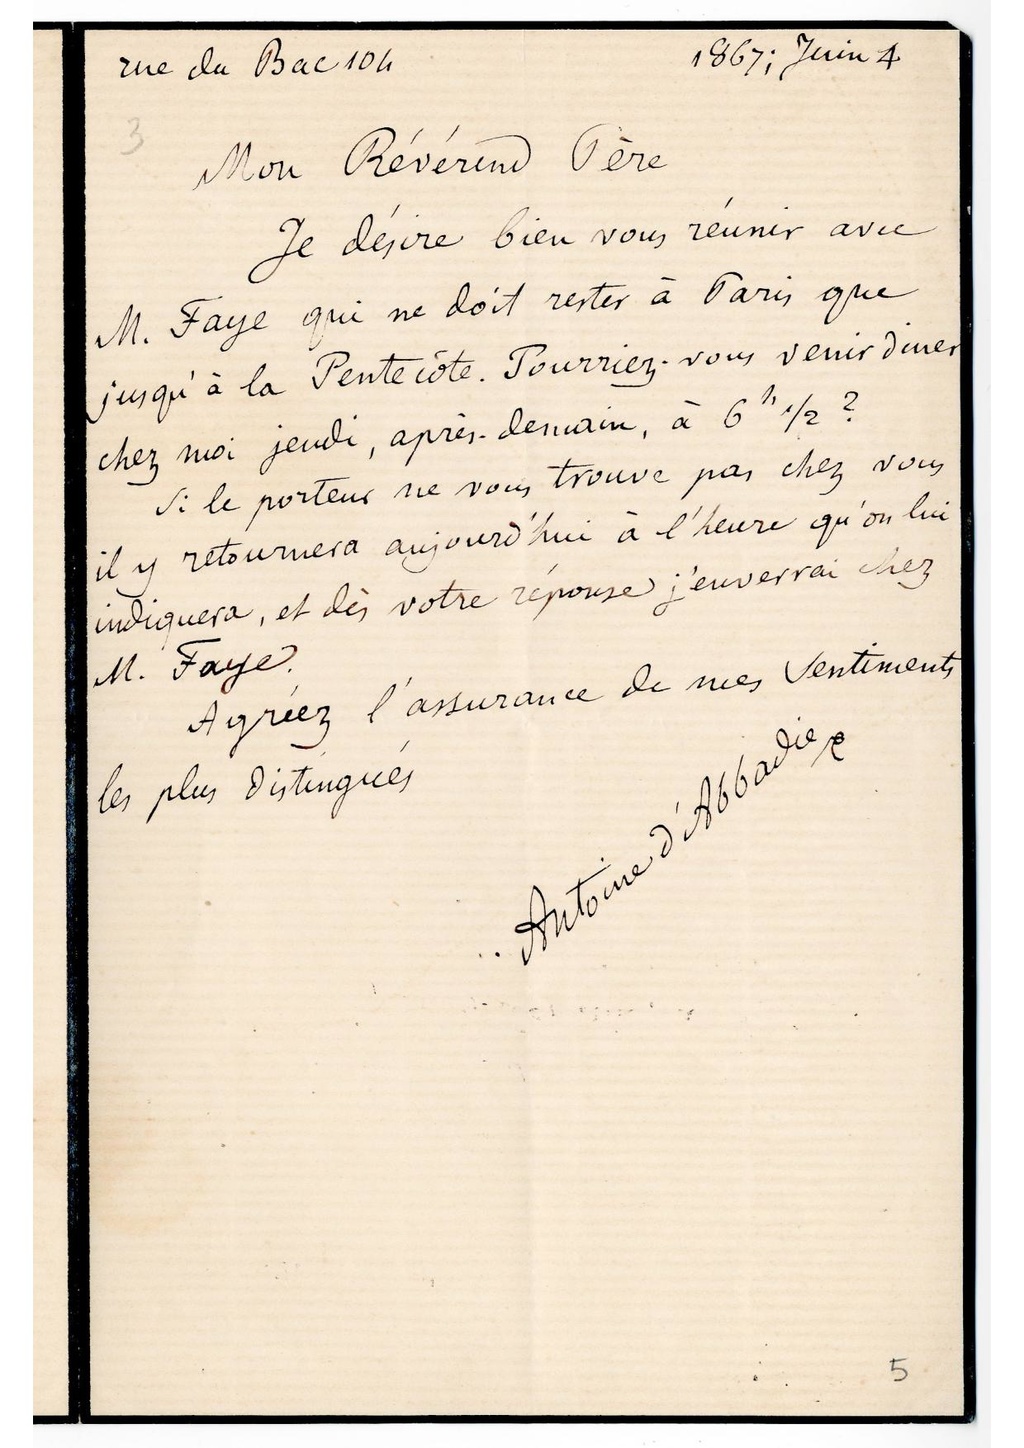 rue du Bac 104
1867; Juin 4
3
Mon Révérend Père
Je désire bien vous réunir avec
M. Faye qui ne doit rester à Paris que
jusqu'à la Pentecôte. Pourriez-vous venir diner
chez moi jeudi, après-demain, à 6 h 1/2 ?
Si le porteur ne vous trouve pas chez vous
il y retournera aujourd'hui à l'heure qu'on lui
indiquera, et dès votre réponse j'enverrai chez
M. Faye.
Agréez l'assurance de mes sentiments
les plus distingués
Antoine d'Abbadie
5